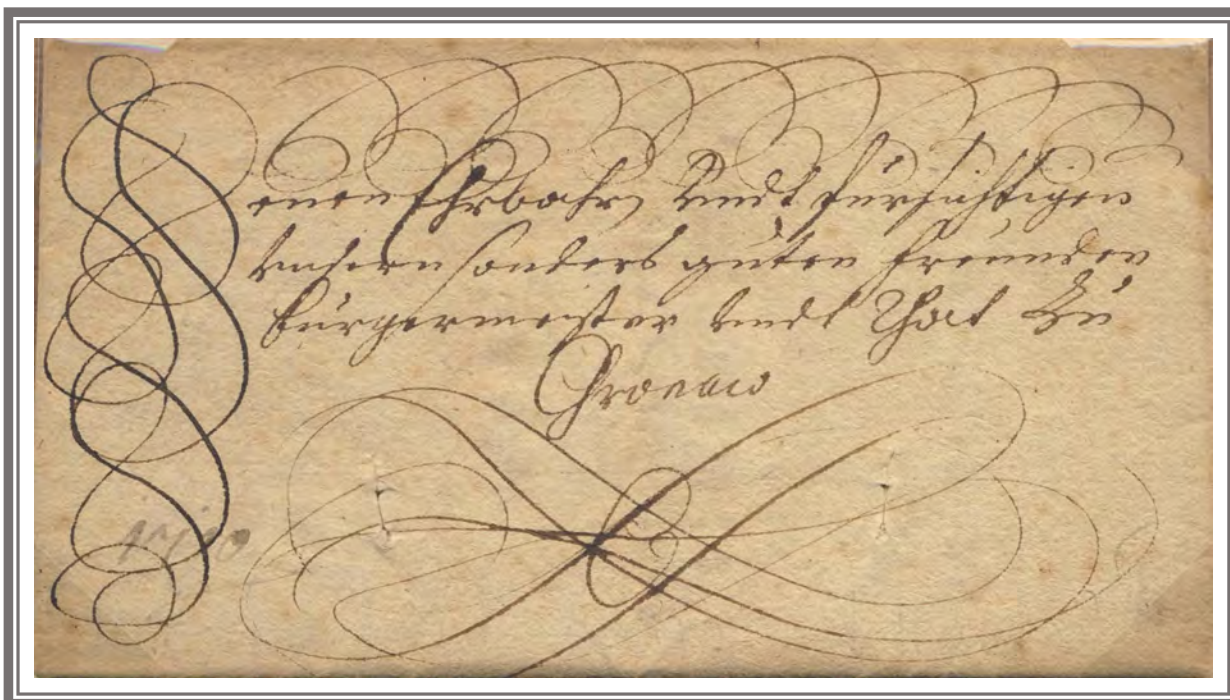 Denen Ehrbahrn Vndt fürsichtigen
Vnsern sonders guten freunden
bürgermeister Vndt Rhat Zu
Gronaw